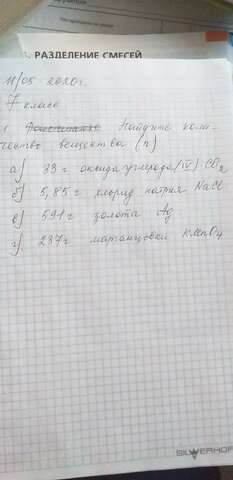 РАЗДЕЛЕНИЕ СМЕСЕЙ
11/05 2020г.
7 класс
Найдите коли-
чество вещества (n)
а) 33 г оксида углерода (IV) CO2
б) 5,85 г хлорид натрия NaCl
в) 591 г золота Ag
г) 237 г марганцовки KMnO4
SILWERHOF